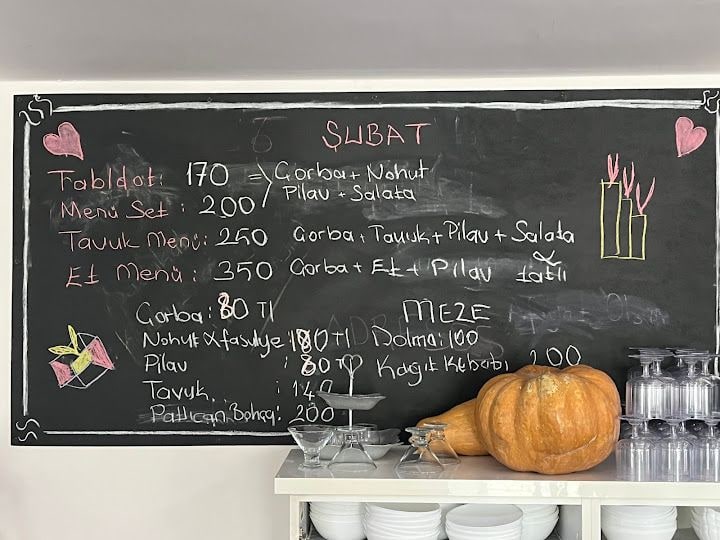 ŞUBAT
Tabldot: 170 => Çorba + Nohut
Pilav + Salata
Menü Set : 200
Tavuk Menü: 250 Çorba + Tavuk + Pilav + Salata
Et Menü : 350 Çorba + Et + Pilav & tatlı
Çorba : 80 Tl
Nohut & fasulye : 180 Tl
Pilav : 80 Tl
Tavuk :
: 200
MEZE
Dolma: 100
Kağıt Kebabı 200